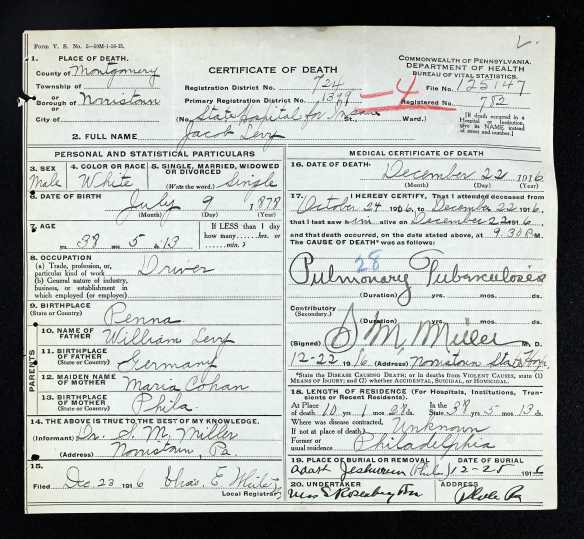 Form V. S. No. 5—50M-1-16-15.
1. PLACE OF DEATH.
County of Montgomery
Township of
or
Borough of Norristown
or
City of
CERTIFICATE OF DEATH
Registration District No. 724
Primary Registration District No. 1349
COMMONWEALTH OF PENNSYLVANIA.
DEPARTMENT OF HEALTH
BUREAU OF VITAL STATISTICS.
File No. 125147
-4
Registered No. 782
(No. State Hospital for Insane St., Ward.)
[If death occurred in a Hospital or Institution, give its NAME instead of street and number.]
2. FULL NAME Jacob Levy
PERSONAL AND STATISTICAL PARTICULARS
3. SEX Male
4. COLOR OR RACE White
5. SINGLE, MARRIED, WIDOWED OR DIVORCED (Write the word.) Single
6. DATE OF BIRTH July 9 1878
(Month) (Day) (Year)
7. AGE
38 yrs. 5 mos. 13 ds.
If LESS than 1 day how many......hrs. or ......min.?
8. OCCUPATION
(a) Trade, profession, or particular kind of work Driver
(b) General nature of industry, business, or establishment in which employed (or employer)
9. BIRTHPLACE
(State or Country) Penna
PARENTS
10. NAME OF FATHER William Levy
11. BIRTHPLACE OF FATHER
(State or Country) Germany
12. MAIDEN NAME OF MOTHER Maria Cohan
13. BIRTHPLACE OF MOTHER
(State or Country) Phila
14. THE ABOVE IS TRUE TO THE BEST OF MY KNOWLEDGE.
(Informant) Dr. S. M. Miller
(Address) Norristown, Pa.
15.
Filed Dec 23 1916 Chas. E. White
Local Registrar
MEDICAL CERTIFICATE OF DEATH
16. DATE OF DEATH.
December 22 1916
(Month) (Day) (Year)
17. I HEREBY CERTIFY, That I attended deceased from
October 24 1906, to December 22 1916,
that I last saw him alive on December 22 1916,
and that death occurred, on the date stated above, at 9.30 P M.
The CAUSE OF DEATH* was as follows:
28
Pulmonary Tuberculosis
(Duration) yrs. mos. ds.
Contributory
(Secondary.)
(Duration) yrs. mos. ds.
(Signed) S. M. Miller M. D.
12-22 1916 (Address) Norristown State Hosp.
*State the DISEASE CAUSING DEATH; or in deaths from VIOLENT CAUSES, state (1) MEANS OF INJURY; and (2) whether ACCIDENTAL, SUICIDAL, or HOMICIDAL.
18. LENGTH OF RESIDENCE (For Hospitals, Institutions, Transients or Recent Residents).
At Place of death 10 yrs. 1 mos. 28 ds. In the State 38 yrs. 5 mos. 13 ds.
Where was disease contracted, If not at place of death? Unknown
Former or usual residence Philadelphia
19. PLACE OF BURIAL OR REMOVAL
Adath Jeshurun (Phila)
DATE OF BURIAL
12-25 1916
20. UNDERTAKER
ADDRESS
Phila Pa